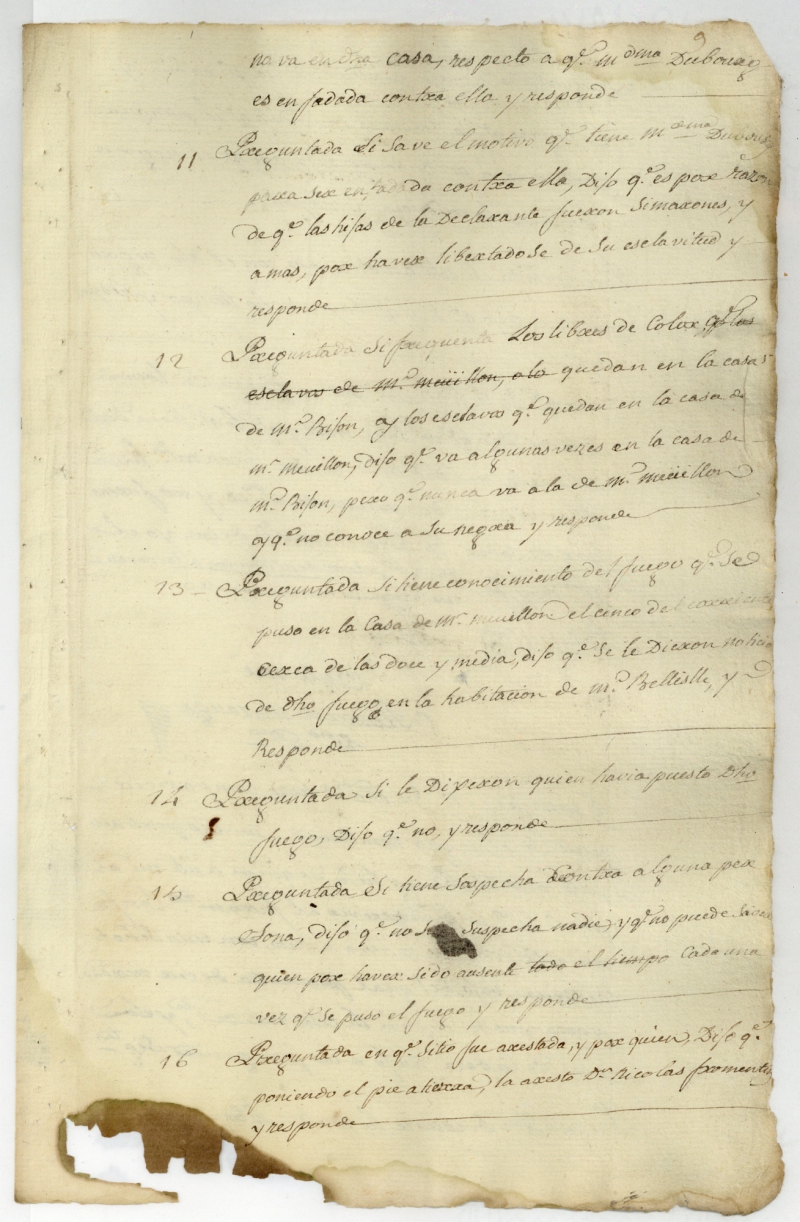 9
na va en dha casa, respecto a q.e m.dma Dubourg
es enfadada contra ella y responde
11 Preguntada Si save el motivo q.e tiene m.dma Dubourg
para ser enfadada contra ella, Dijo q.e es por razon
de q.e las hijas de la Declarante fueron Simarones, y
a mas, por haver libertadose de su esclavitud y
responde
12 Preguntada si frequenta Los libres de Color q.e las
esclavas de M.r meüillon, a la quedan en la casa
de M.r Bison, oy los esclavos q.e quedan en la casa de
m.r meuillon, dijo q.e va algunas vezes en la casa de
M.r Bison, pero q.e nunca va a la de M.r meüillon
oy q.e no conoce a su negra y responde
13 Preguntada si tiene conocimiento del fuego q.e se
puso en la Casa de M.r meuillon el cinco del corriente
cerca de las doce y media, dijo q.e Se le Dieron noticia
de dho fuego en la habitacion de M.r Bellisle, y
Responde
14 Preguntada Si le Dixeron quien havia puesto Dho
fuego, Dijo q.e no, y responde
15 Preguntada Si tiene Sospecha Contra alguna per
Sona, dijo q.e no suspecha nadie, y q.e no puede Saver
quien por haver sido ausente todo el tiempo Cada una
vez q.e Se puso el fuego y responde
16 Preguntada en q.e Sitio fue arestada, y por quien, Dijo q.e
poniendo el pie a tierra, la aresto D.n Nicolas fromentin
y responde